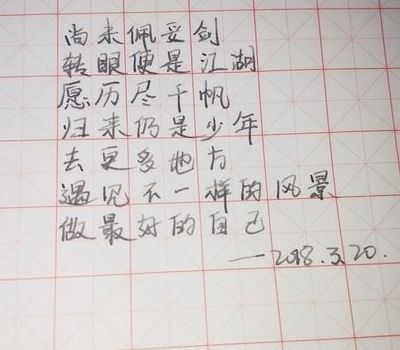 尚未佩妥剑
转眼便是江湖
愿历尽千帆
归来仍是少年
去更多地方
遇见不一样的风景
做最好的自己
——2018.3.20.